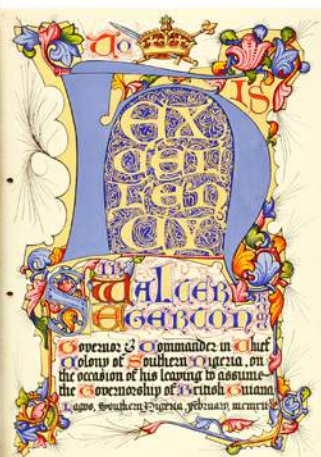 To
HIS
EX
CEL
LEN
CY
SIR
WALTER
EGERTON
Governor & Commander in Chief
Colony of Southern Nigeria, on
the occasion of his leaving to assume
the Governorship of British Guiana
Lagos, Southern Nigeria, February,